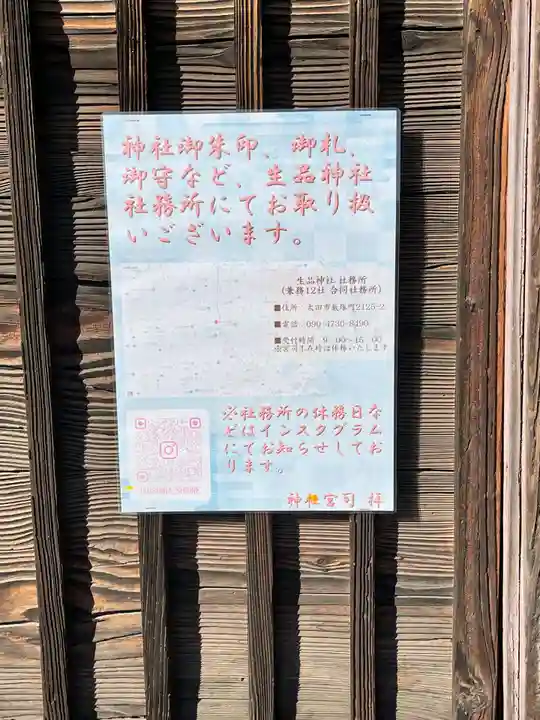 神社御朱印、御札、
御守など、生品神社
社務所にてお取り扱
いございます。
生品神社 社務所
(兼務12社 合同社務所)
■住所 太田市飯塚町2125-2
■電話 090-4730-8490
■受付時間 9:00~16:00
※宮司不在時は休務いたします
※社務所の休務日な
どはインスタグラム
にてお知らせしてお
ります。
神社宮司 拝